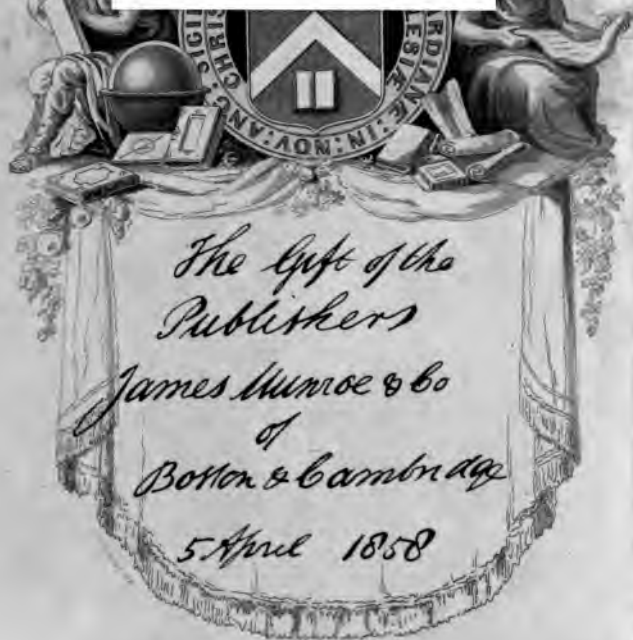 SIGI
CHRIS
RDIANÆ:IN:NOV:ANG:
LESIÆ
The Gift of the
Publishers
James Munroe & Co
of
Boston & Cambridge
5 April 1858